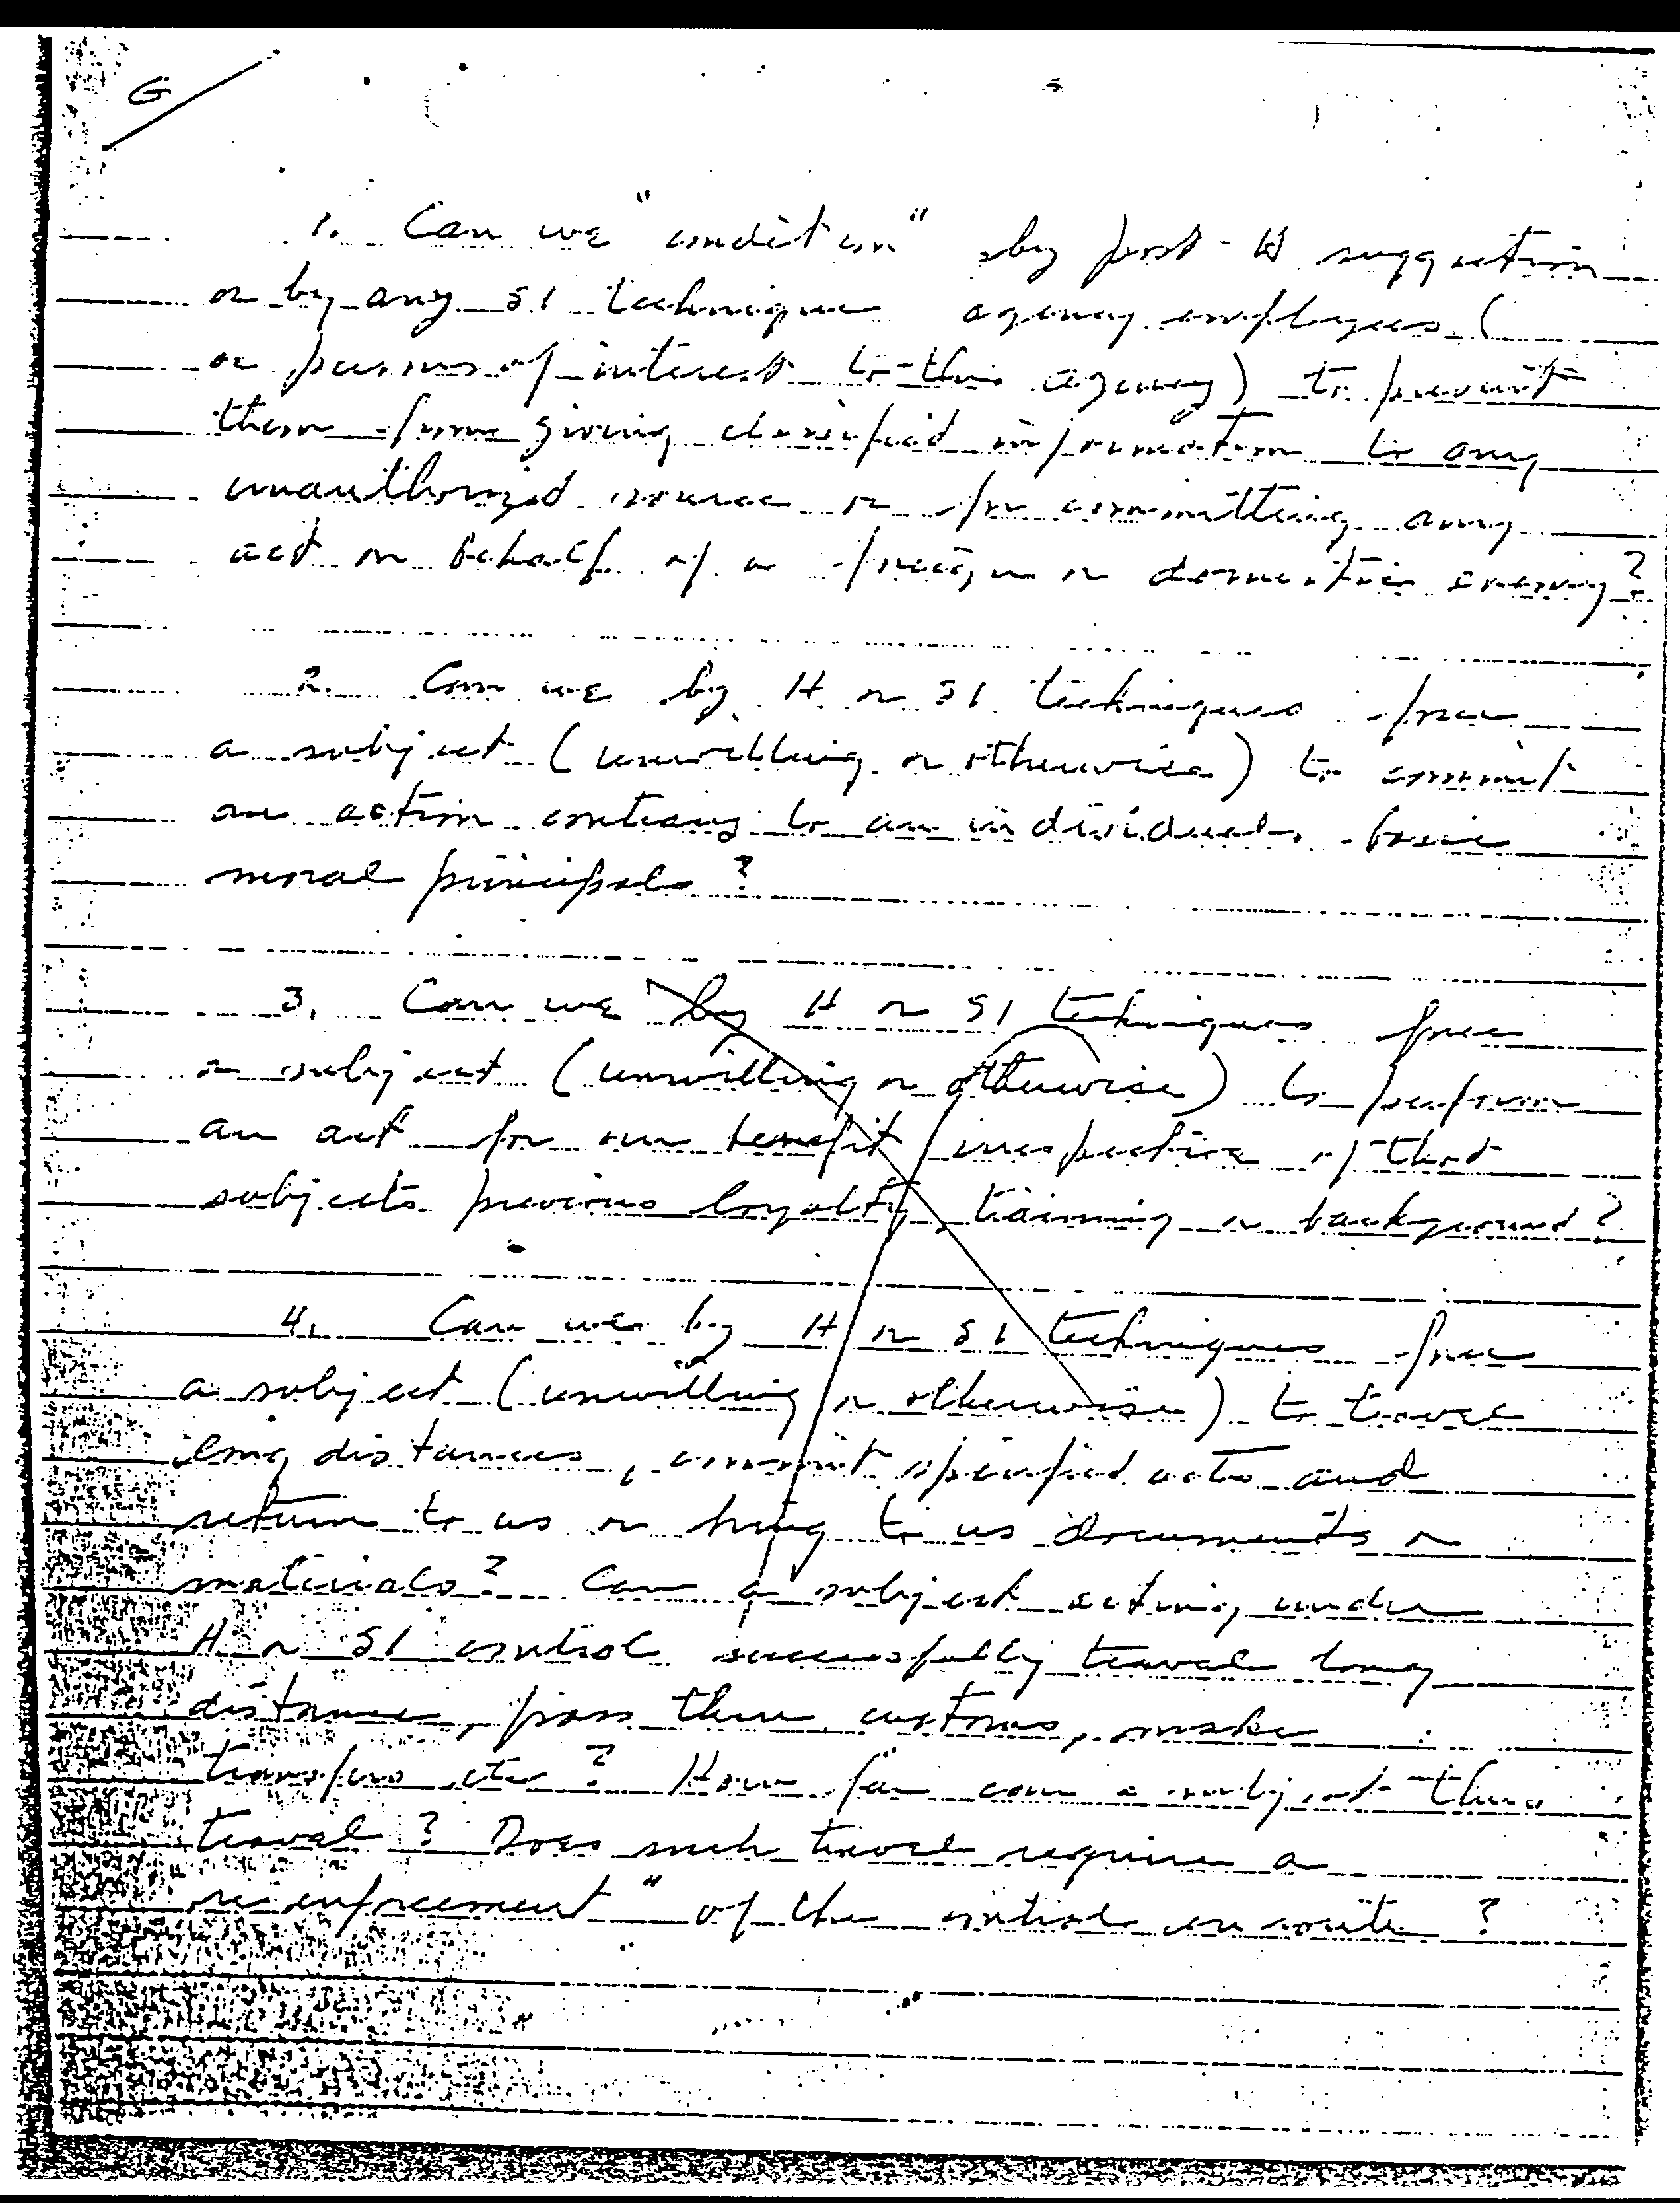 G
1. Can we "condition" by post-H suggestion
or by any SI technique agency employees (
or persons of interest to this agency) to prevent
them from giving classified information to any
unauthorized source or for committing any
act on behalf of a foreign or domestic enemy?
2. Can we by H or SI techniques force
a subject (unwilling or otherwise) to commit
an action contrary to an individuals basic
moral principals?
3. Can we by H or SI techniques force
a subject (unwilling or otherwise) to perform
an act for our benefit irrespective of that
subjects previous loyalty, training or background?
4. Can we by H or SI techniques force
a subject (unwilling or otherwise) to travel
long distances, commit specified acts and
return to us or bring to us documents or
materials? Can a subject acting under
H or SI control successfully travel long
distance, pass thru customs, make
transfers etc? How far can a subject thus
travel? Does such travel require a
re enforcement" of the control en route?